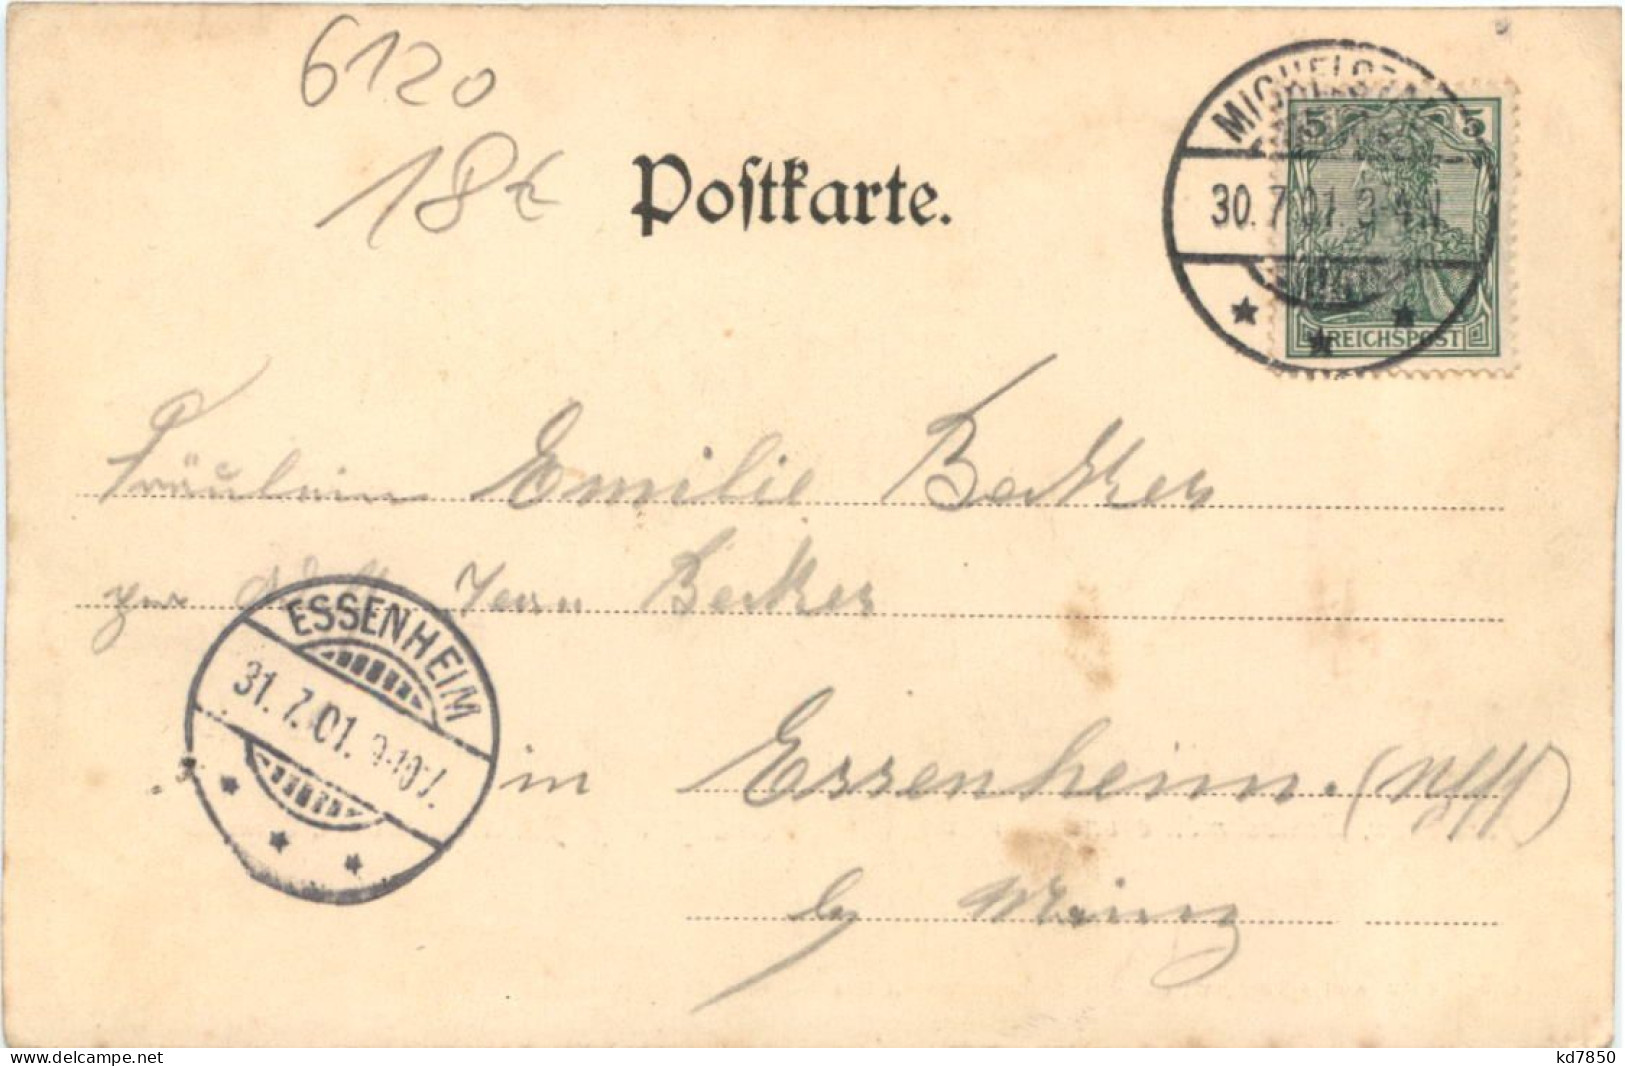 6120
18€
Postkarte.
MICHELSTADT
30.7.01. 3-4 N
5 5
REICHSPOST
Fräulein Emilie Becker
Becker
ESSENHEIM
31.7.01. 9-10 V.
in Essenheim. (
b/ Mainz
www.delcampe.net
kd7850